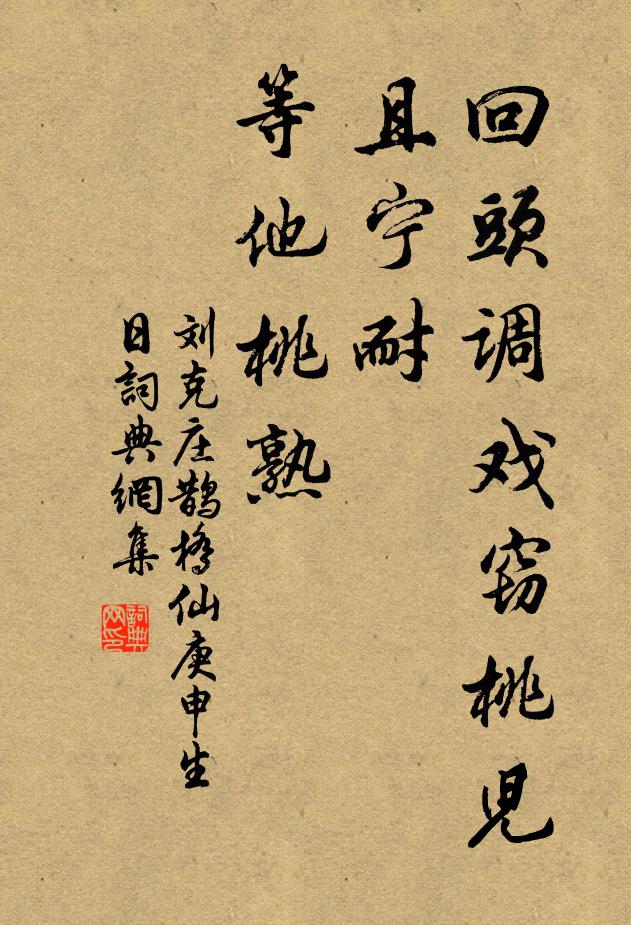 回頭调戏窃桃児
且宁耐
等他桃熟
刘克庄鹊橋仙庚申生
日詞典網集
詞典网印